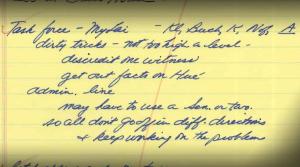 Task force - Mylai - K, Buch, K, Nof, A
dirty tricks - not too high a level -
discredit one witness
get out facts on Hué
admin. line
may have to use a Sen. or two.
so all don't go off in diff. directions
& keep working on the problem